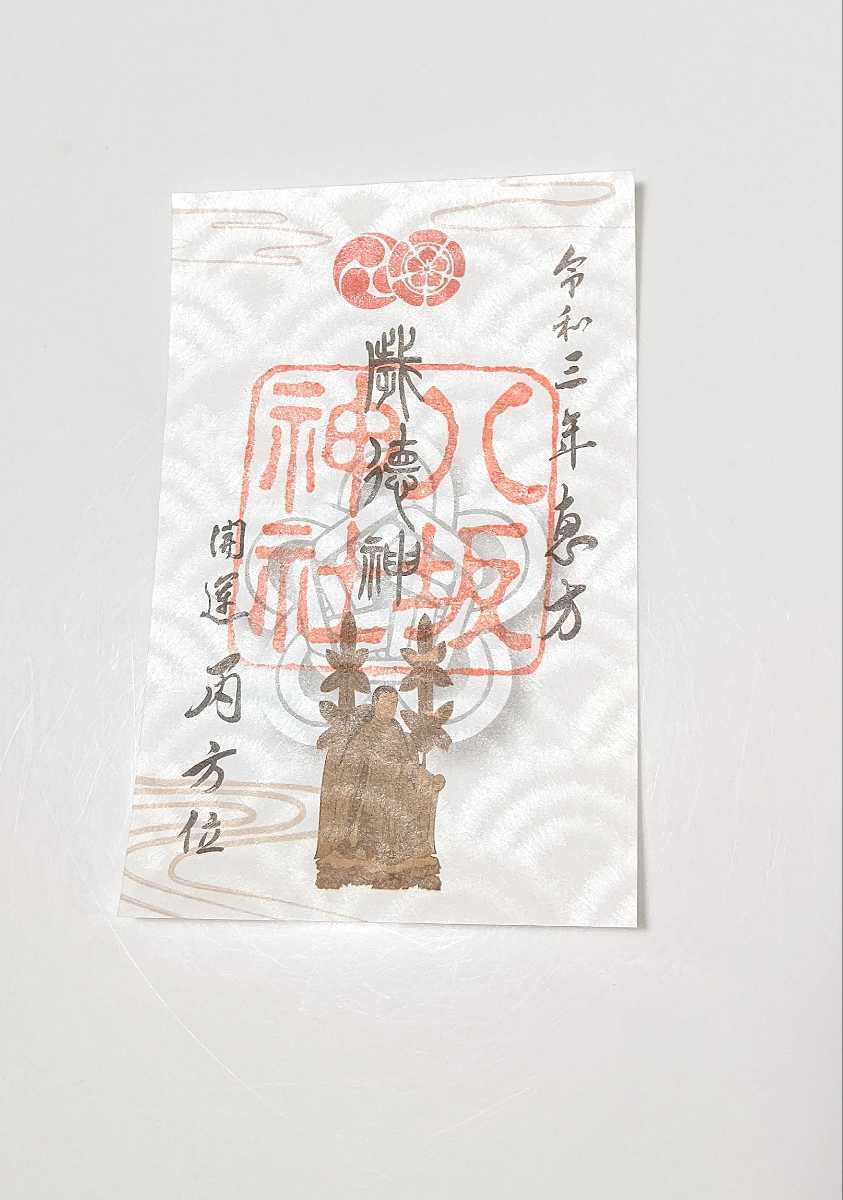 令和三年恵方
歳徳神
八坂
神社
開運丙方位